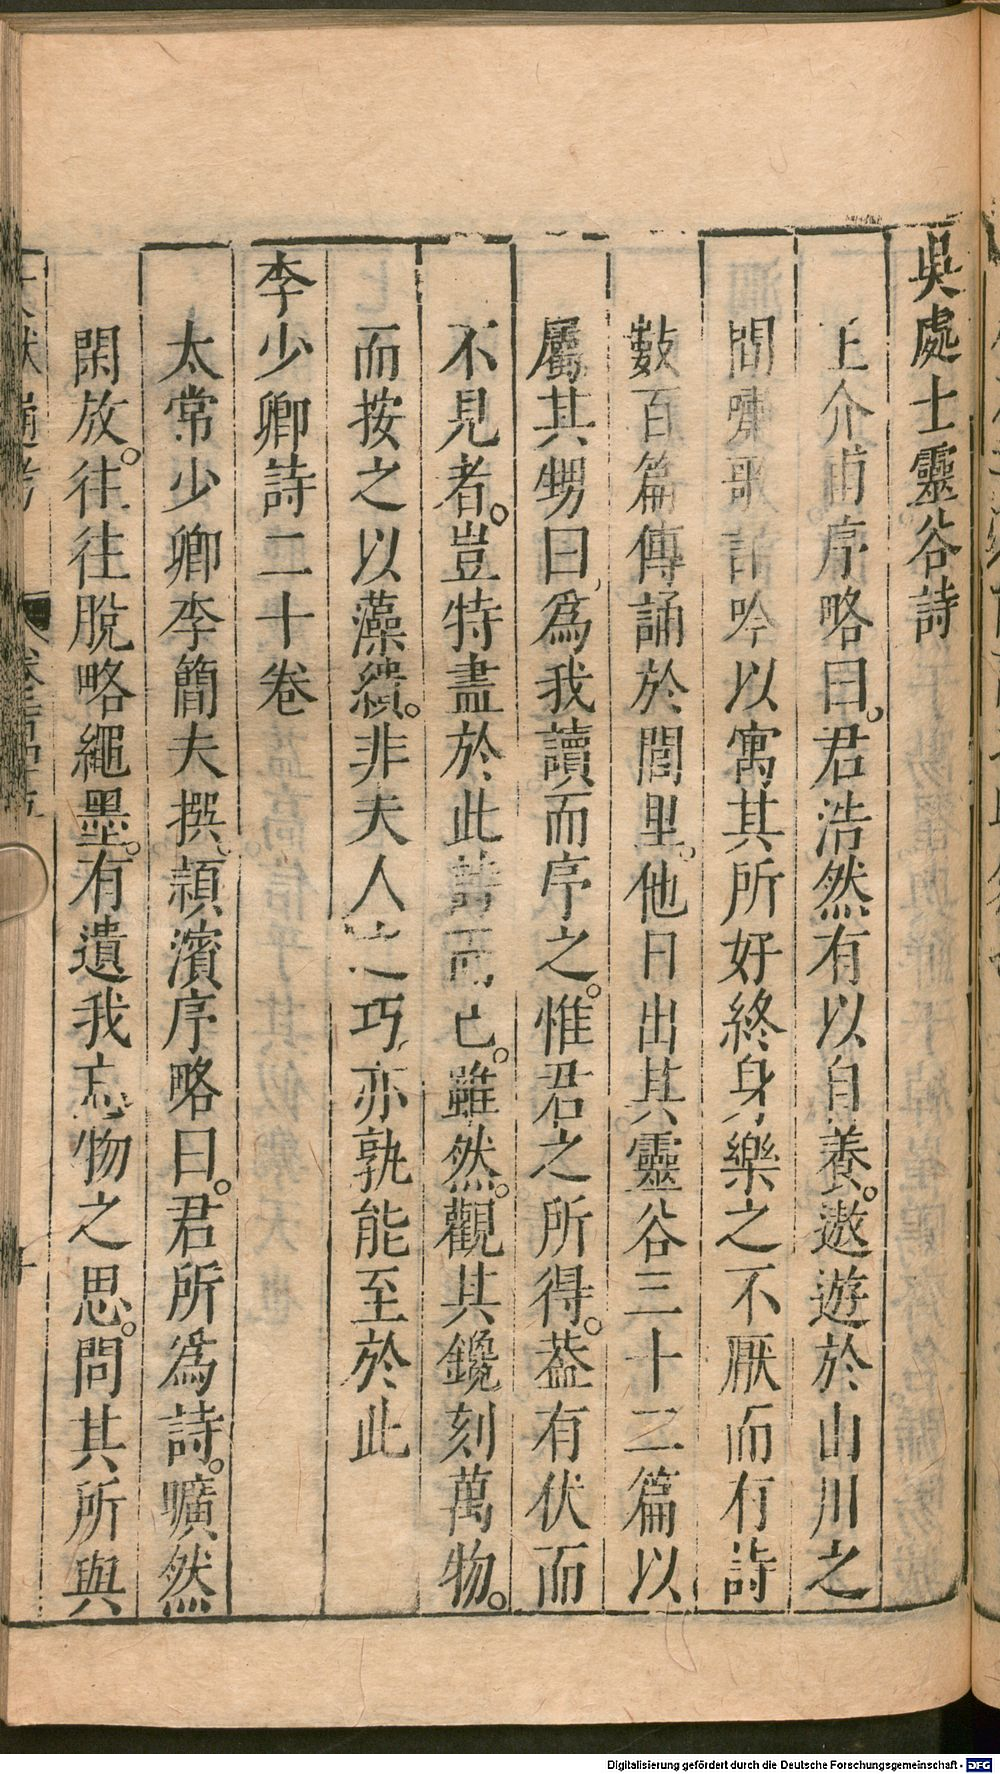 吳處士靈谷詩
王介甫序略曰。君浩然有以自養。遨遊於山川之
間嘯歌謳吟以寓其所好終身樂之不厭而有詩
數百篇傳誦於閭里。他日出其靈谷三十二篇以
屬其甥曰、爲我讀而序之。惟君之所得。葢有伏而
不見者。豈特盡於此詩而已。雖然。觀其鑱刻萬物。
而按之以藻繢。非夫人之巧、亦孰能至於此
李少卿詩二十卷
太常少卿李簡夫撰、潁濱序略曰。君所爲詩。曠然
閑放。往往脫略繩墨。有遺我忘物之思。問其所與
Digitalisierung gefördert durch die Deutsche Forschungsgemeinschaft - DFG